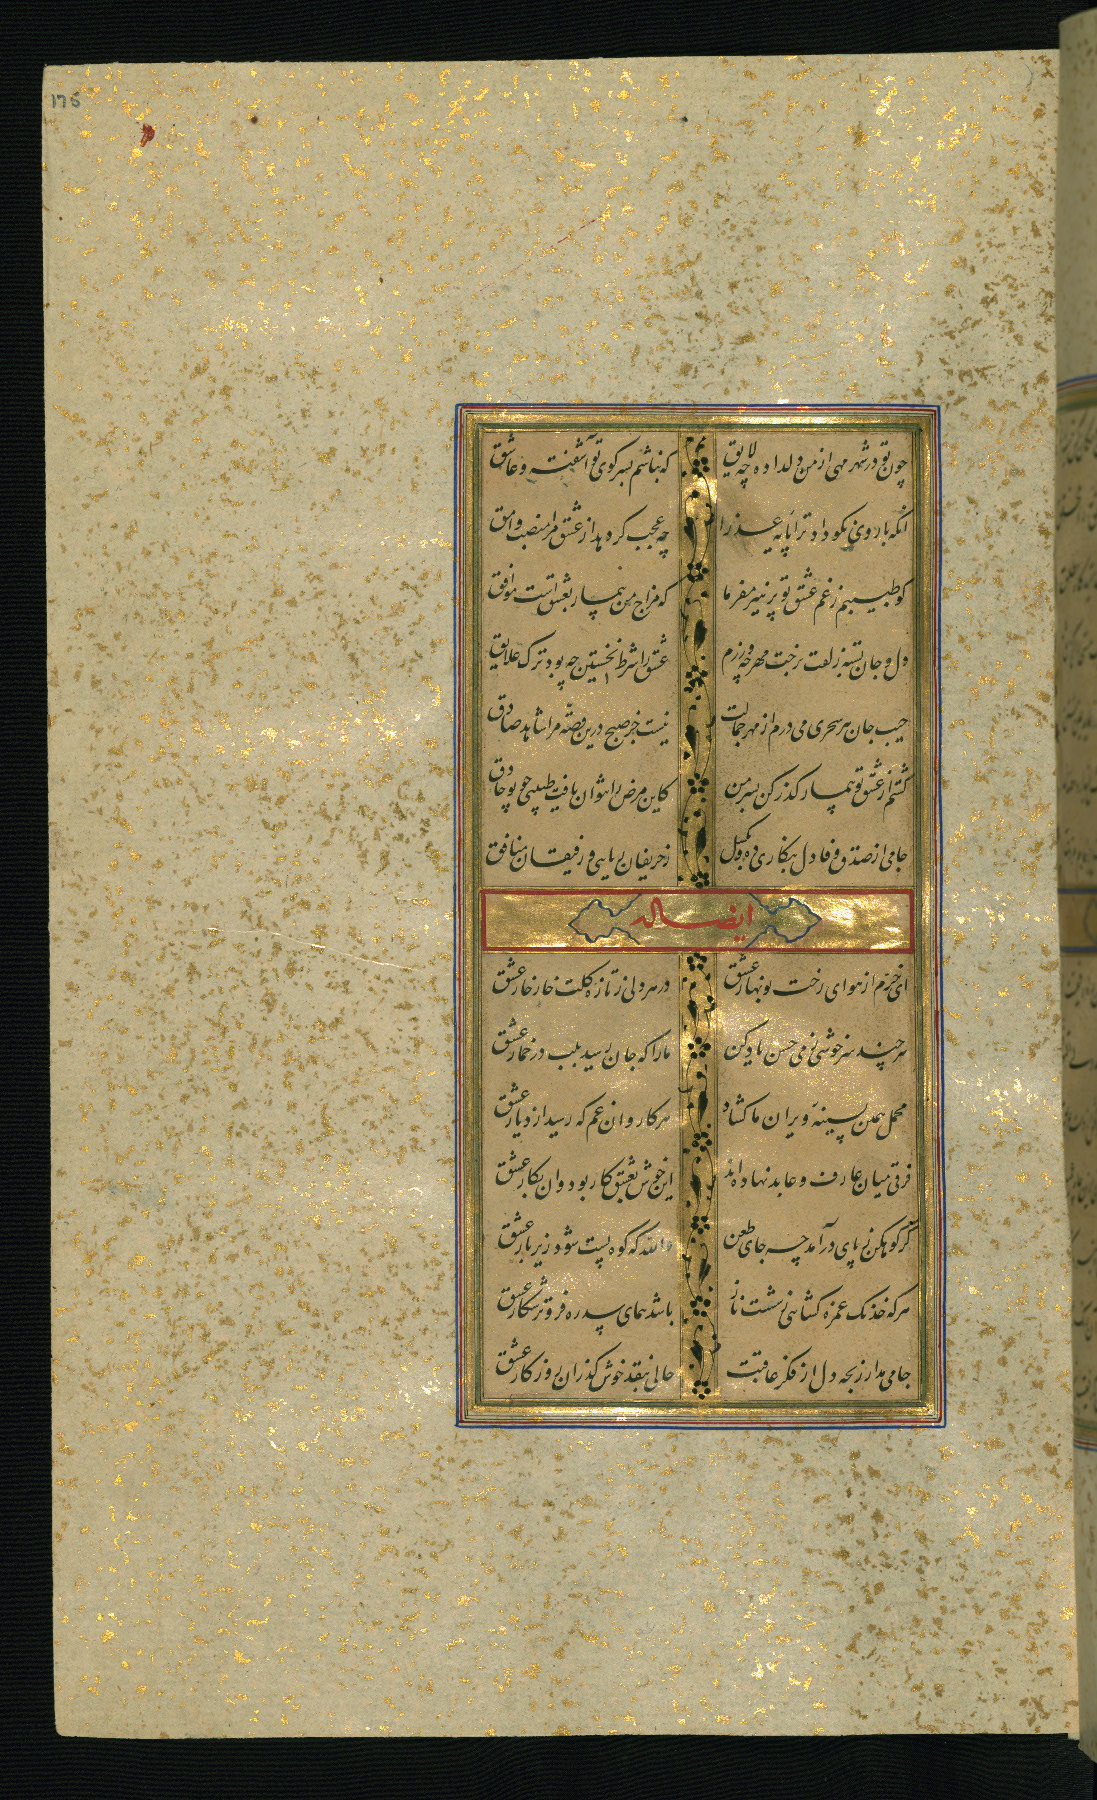 176
چون تو در شهر مهی از من دلداده چه لایق
که نباشم بسر کوی تو آشفته و عاشق
آنکه با روی نکو داد ترا پایه عذرا
چه عجب گر دهد از عشق مرا منصب وامق
کو طبیبم ز غم عشق تو پرهیز مفرما
که مزاج من بیمار بعشق است موافق
دل و جان بسته زلفت برخت مهر چه ورزم
عشق را شرط نخستین چه بود ترک علایق
جیب جان هر سحری می درم از مهر جمالت
نیست جز صبح درین قصه مرا شاهد صادق
گشتم از عشق تو بیمار گذر کن بسر من
کاین مرض را نتوان یافت طبیبی چو تو حاذق
جامی از صدق و وفا دل بنگاری ده و بگسل
ز حریفان ریایی و رفیقان منافق
ایضا له
ای خرم از هوای رخت نوبهار عشق
در هر دلی ز تازه گلت خار خار عشق
هر چند سرخوشی ز می حسن یاد کن
ما را که جان رسید بلب در خمار عشق
محمل همین بسینه ویران ما گشاد
هر کاروان غم که رسید از دیار عشق
فرقی میان عارف و عابد نهاده اند
این خوش بعشق کار بود وان بکار عشق
گر کوهکن ز پای درآمد چه جای طعن
والله که کوه پست شود زیر بار عشق
هر که خدنگ غمزه گشایی ز شست ناز
باشد همای سدره فروتر شکار عشق
جامی مدار رنجه دل از فکر عاقبت
حالی بنقد خوش گذران روزگار عشق